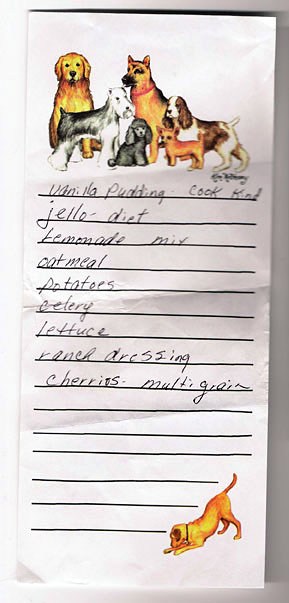 Vanilla Pudding - Cook Kind
jello - diet
Lemonade mix
oatmeal
potatoes
celery
lettuce
ranch dressing
cherrios - multi grain